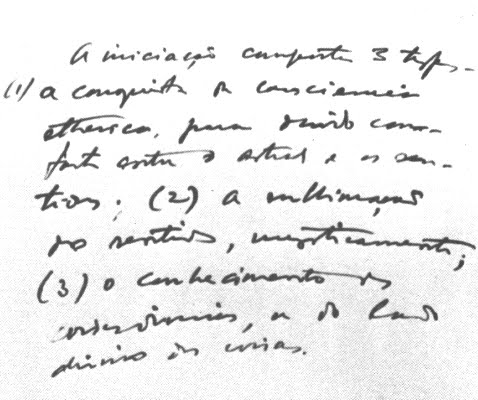 A iniciação comporta 3 typos -
(1) a conquista da consciencia
etherica, para
entre o astral e os sen-
tidos; (2) a sublimação
dos sentidos, mysticamente;
(3) o conhecimento das
ou do lado
divino das coisas.